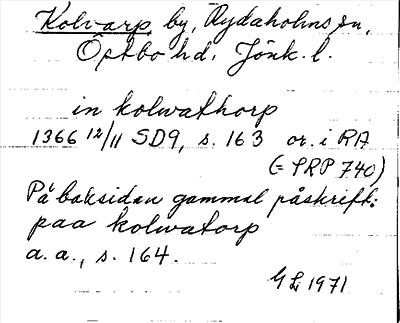 Kolvarp, by, Rydaholms sn,
Östbo hd, Jönk. l.
in kolwathorp
1366 12/11 SD9, s. 163 or. i RA
(= SRP 740)
På baksidan gammal påskrift:
paa kolwatorp
a. a., s. 164.
GL 1971